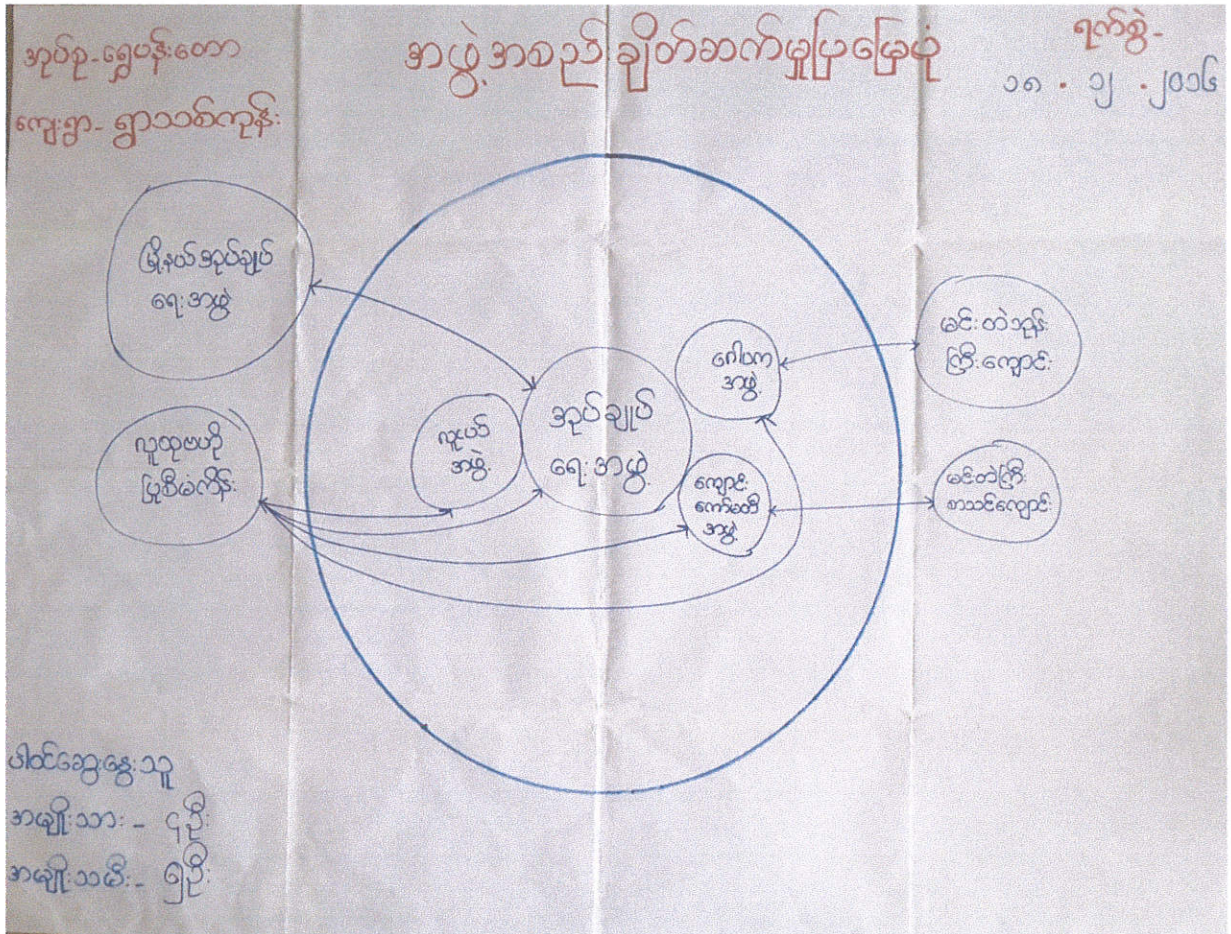 အုပ်စု-ရွှေပန်းတော
ကျေးရွာ- ရွာသစ်ကုန်း
အဖွဲ့အစည်းချိတ်ဆက်မှုပြမြေပုံ
ရက်စွဲ-
၁၈ . ၁၂ . ၂၀၁၆
မြို့နယ်အုပ်ချုပ်
ရေးအဖွဲ့
လူထုဗဟို
ပြုစီမံကိန်း
လူငယ်
အဖွဲ့
အုပ်ချုပ်
ရေးအဖွဲ့
ဂေါပက
အဖွဲ့
ကျောင်း
ကော်မတီ
အဖွဲ့
မင်းတဲဘုန်း
ကြီးကျောင်း
မင်းတဲကြီး
စာသင်ကျောင်း
ပါဝင်ဆွေးနွေးသူ
အမျိုးသား - ၄ဦး
အမျိုးသမီး - ၅ဦး